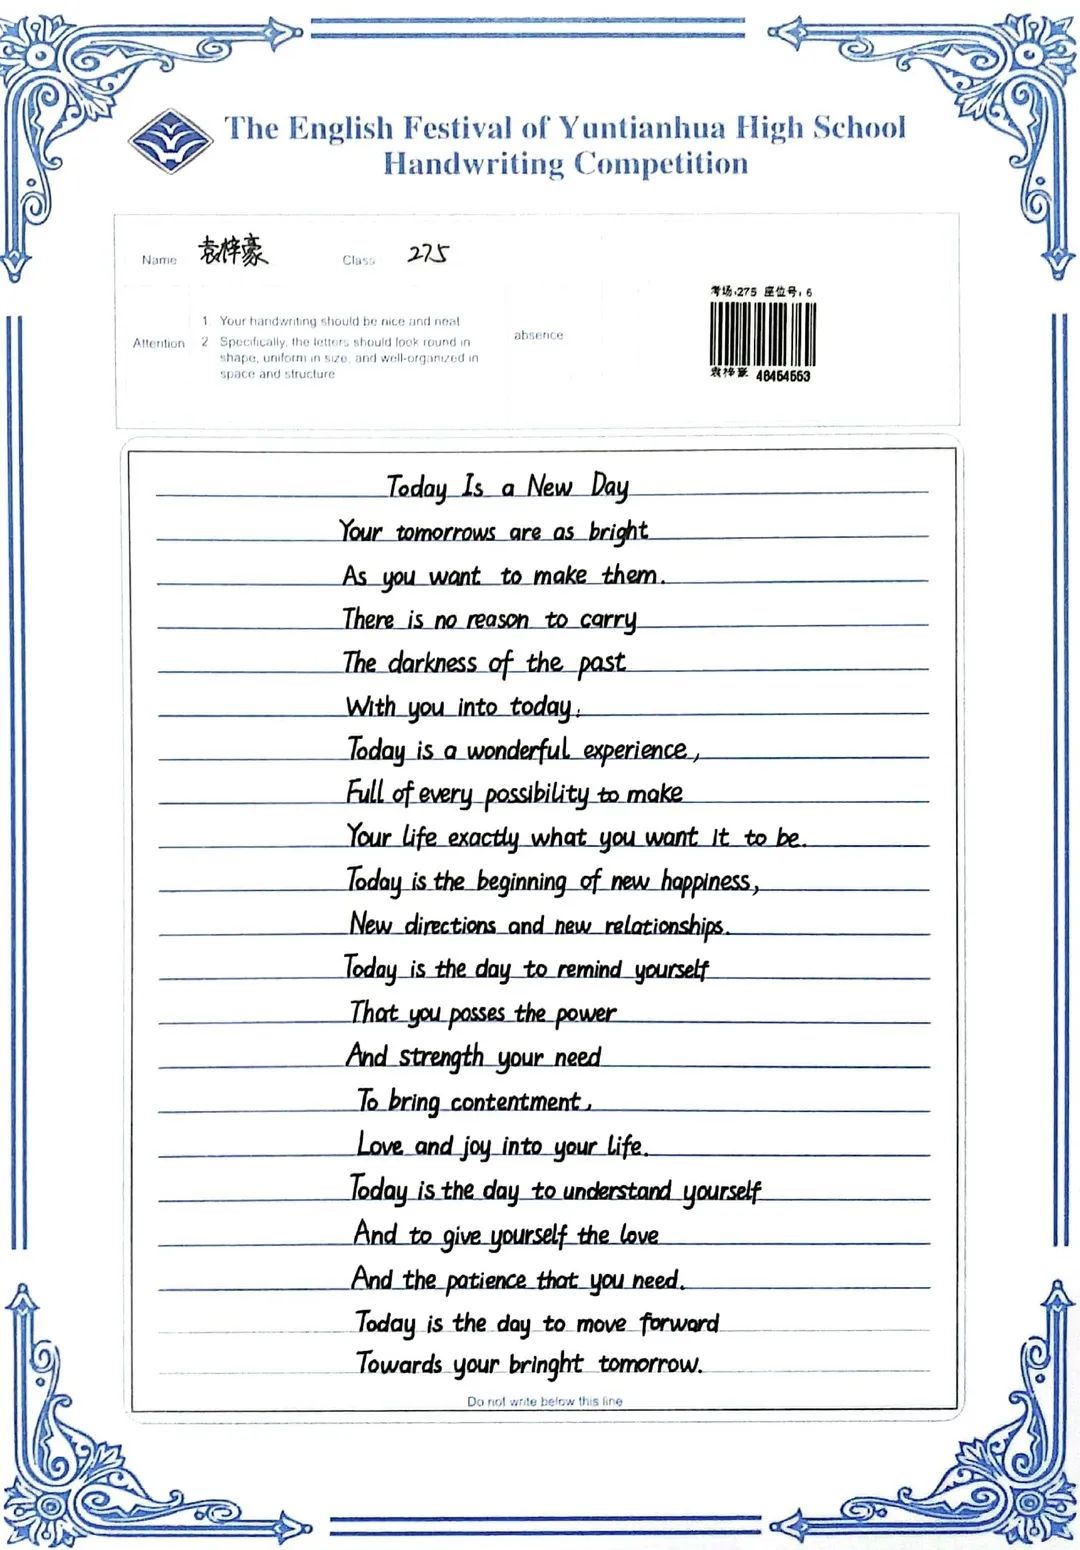 The English Festival of Yuntianhua High School
Handwriting Competition
Name 袁梓豪 Class 275
考场:275 座位号:6
Attention
1. Your handwriting should be nice and neat
2. Specifically, the letters should look round in
shape, uniform in size, and well-organized in
space and structure
absence
袁梓豪 48454553
Today Is a New Day
Your tomorrows are as bright
As you want to make them.
There is no reason to carry
The darkness of the past
With you into today.
Today is a wonderful experience,
Full of every possibility to make
Your life exactly what you want it to be.
Today is the beginning of new happiness,
New directions and new relationships.
Today is the day to remind yourself
That you posses the power
And strength your need
To bring contentment,
Love and joy into your life.
Today is the day to understand yourself
And to give yourself the love
And the patience that you need.
Today is the day to move forward
Towards your bringht tomorrow.
Do not write below this line